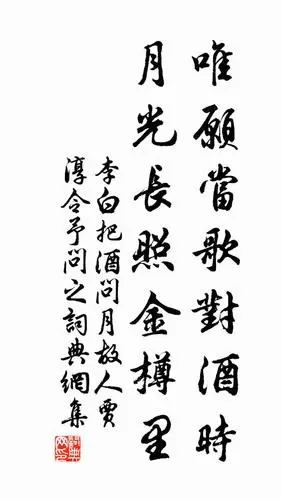 唯願當歌對酒時
月光長照金樽里
李白把酒問月故人賈
淳令予問之詞典網集